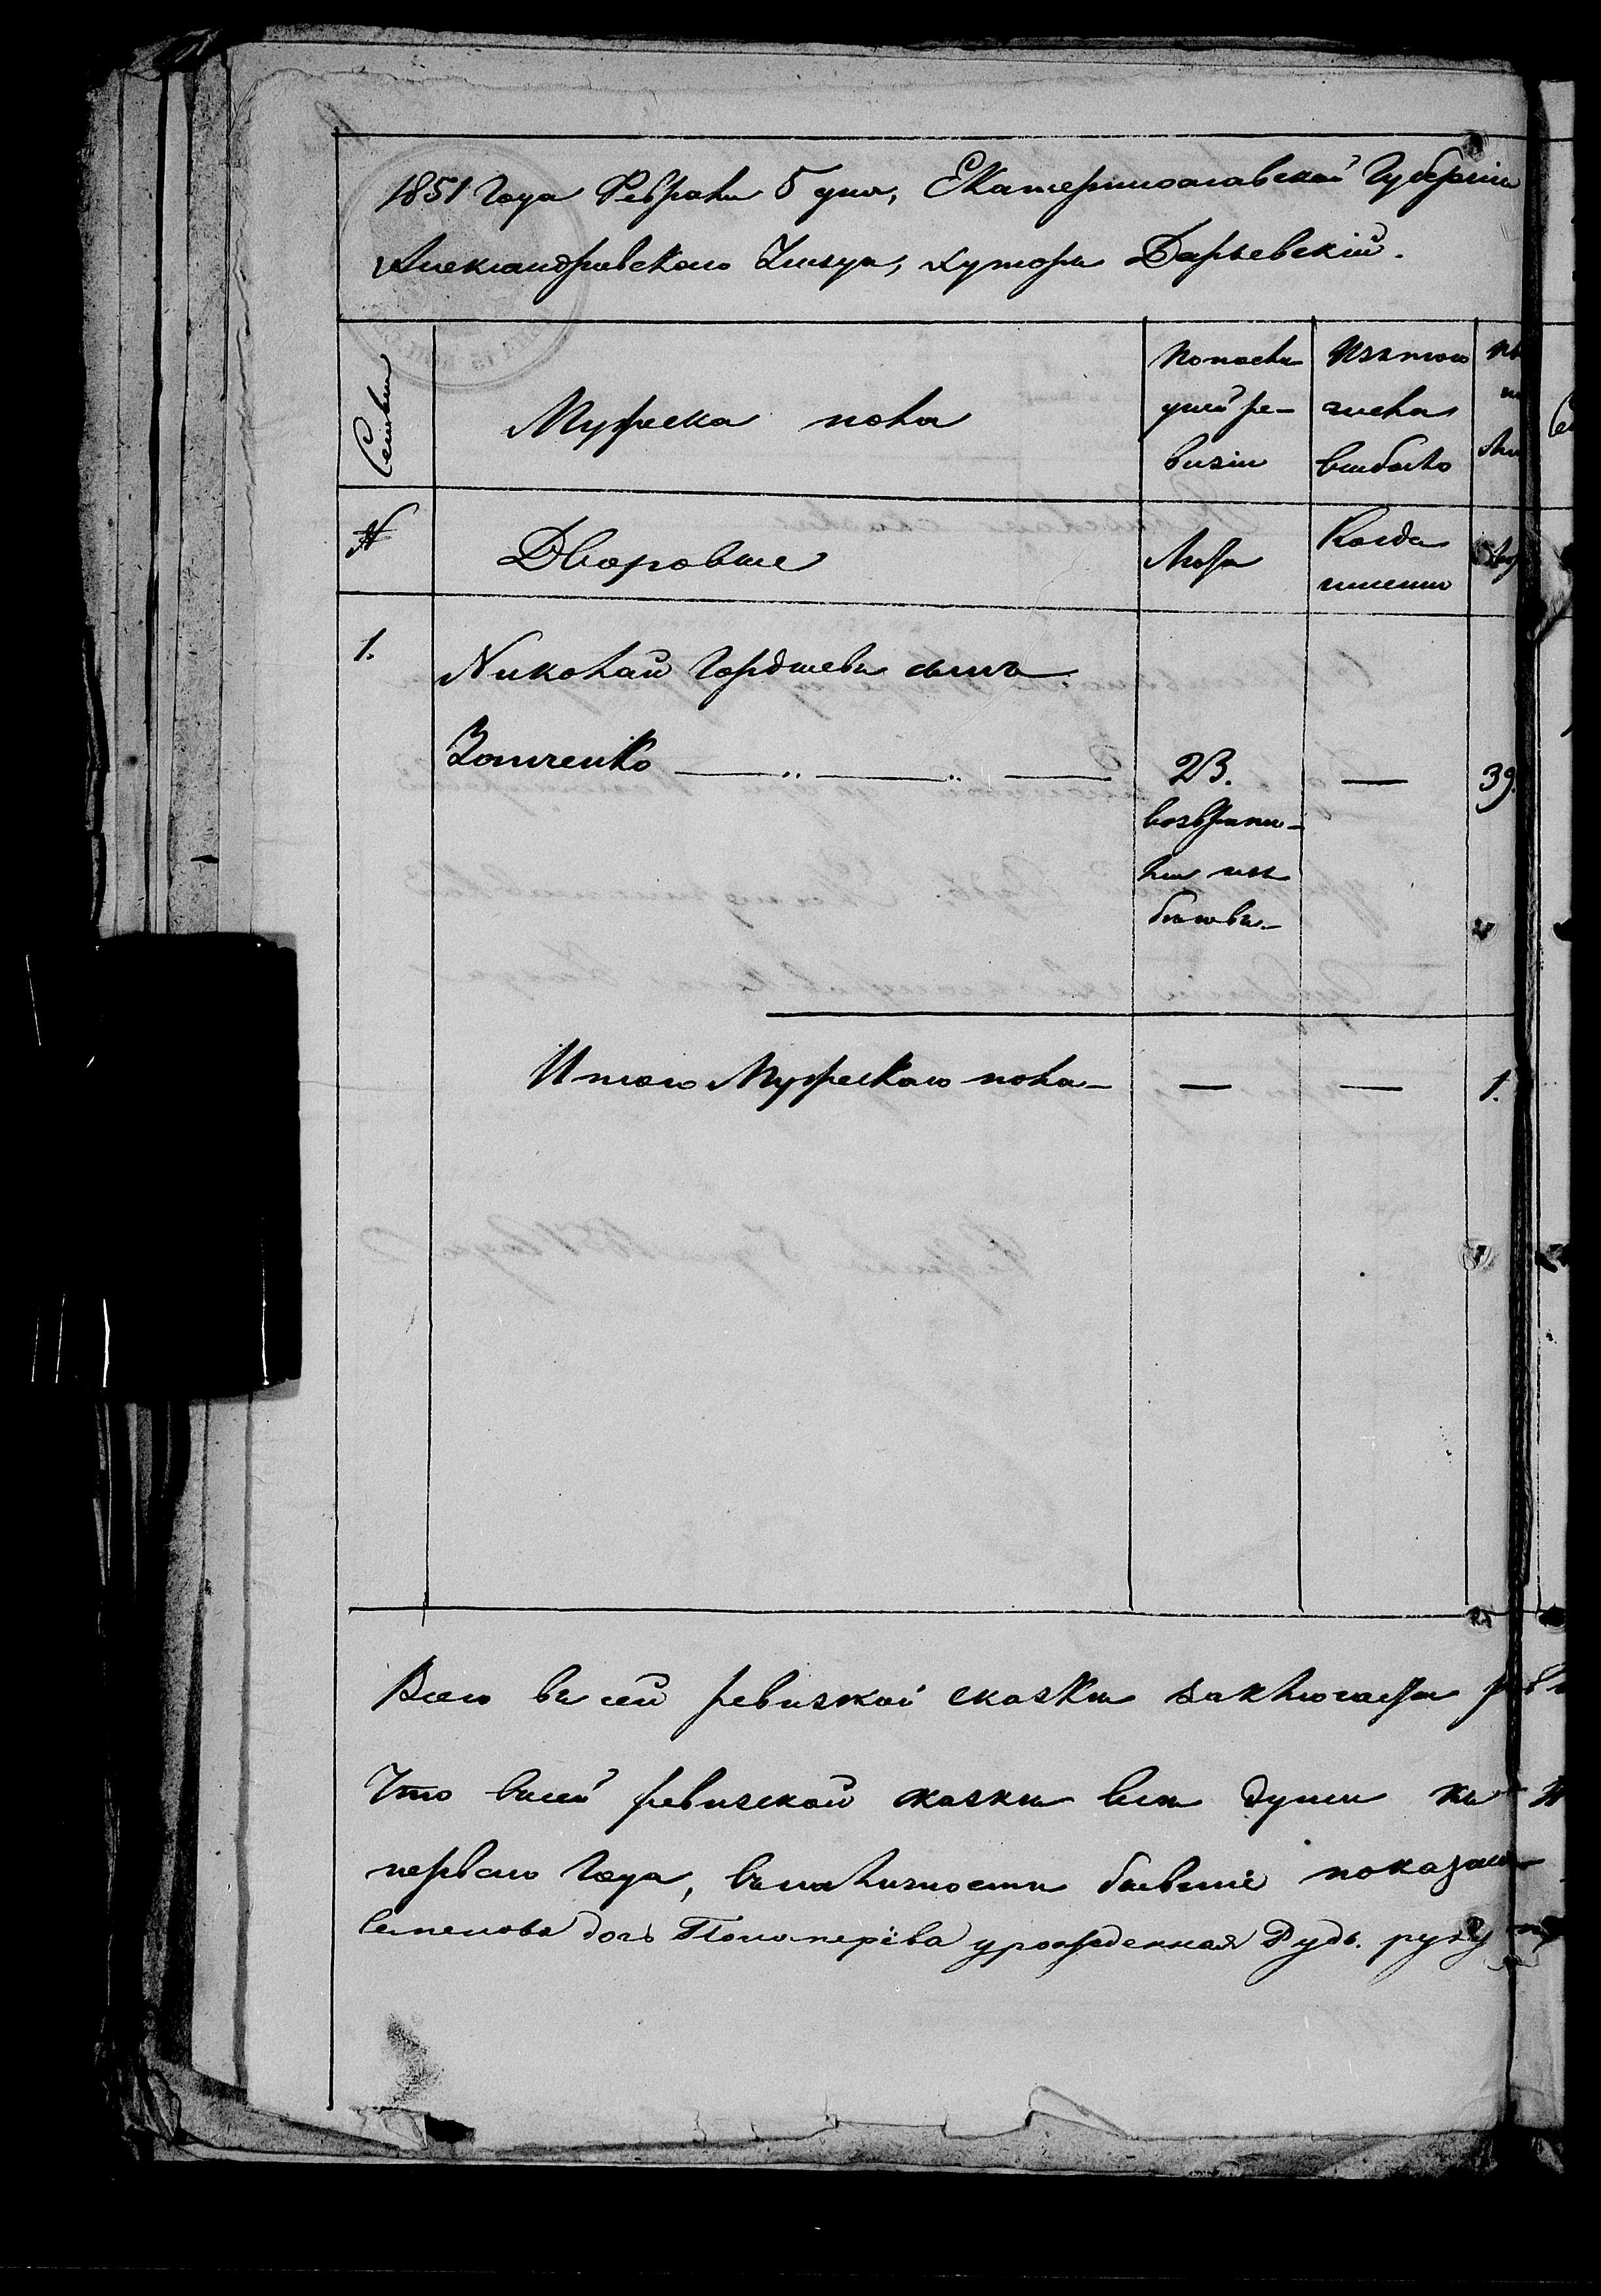 1851 года Февраля 5 дня, Екатеринославской Губернии
Александровскаго Уѣзда, хуторъ Дарьевскій.
Семьи
Мужеска пола
По послѣ
дней ре-
визіи
Изъ того
числа
выбыло
№
Дворовые
Лѣта
Когда
именно
1.
Николай Гордѣевъ сынъ
Зонченко
23.
39.
возврати-
лся изъ
бѣговъ.
Итого Мужескаго пола — — 1.
Всего въ сей ревизкой сказки заключается
Что в сей ревизской сказки всѣ души по
перваго года, въ наличности бывшіе показан
Семенова дочь Пономарёва урожденная Дудь. руку